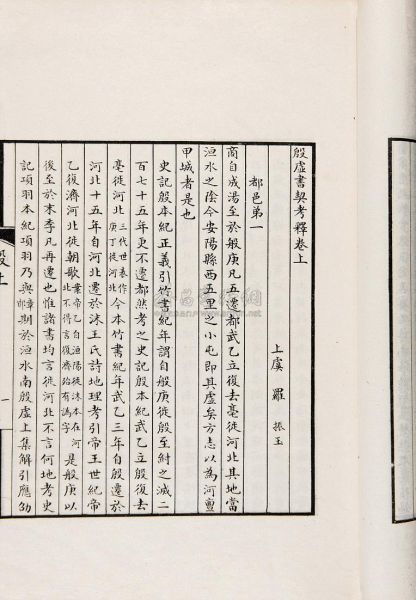 殷虛書契考釋卷上
上虞 羅 振玉
都邑第一
商自成湯至於般庚凡五遷都武乙立復去亳徙河北其地當
洹水之陰今安陽縣西五里之小屯即其虛矣方志以為河亶
甲城者是也
史記殷本紀正義引竹書紀年謂自般庚徙殷至紂之滅二
百七十五年更不遷都然考之史記殷本紀武乙立殷復去
亳徙河北三代世表作庚丁徙河北今本竹書紀年武乙三年自殷遷於
河北十五年自河北遷於沬王氏詩地理考引帝王世紀帝
乙復濟河北徙朝歌案帝乙自洹陽徙沬本在河北不得言復濟殆有譌字是般庚以
後至於末季凡再遷也惟諸書均言徙河北不言何地考史
記項羽本紀項羽乃與章邯期於洹水南殷虛上集解引應劭
一